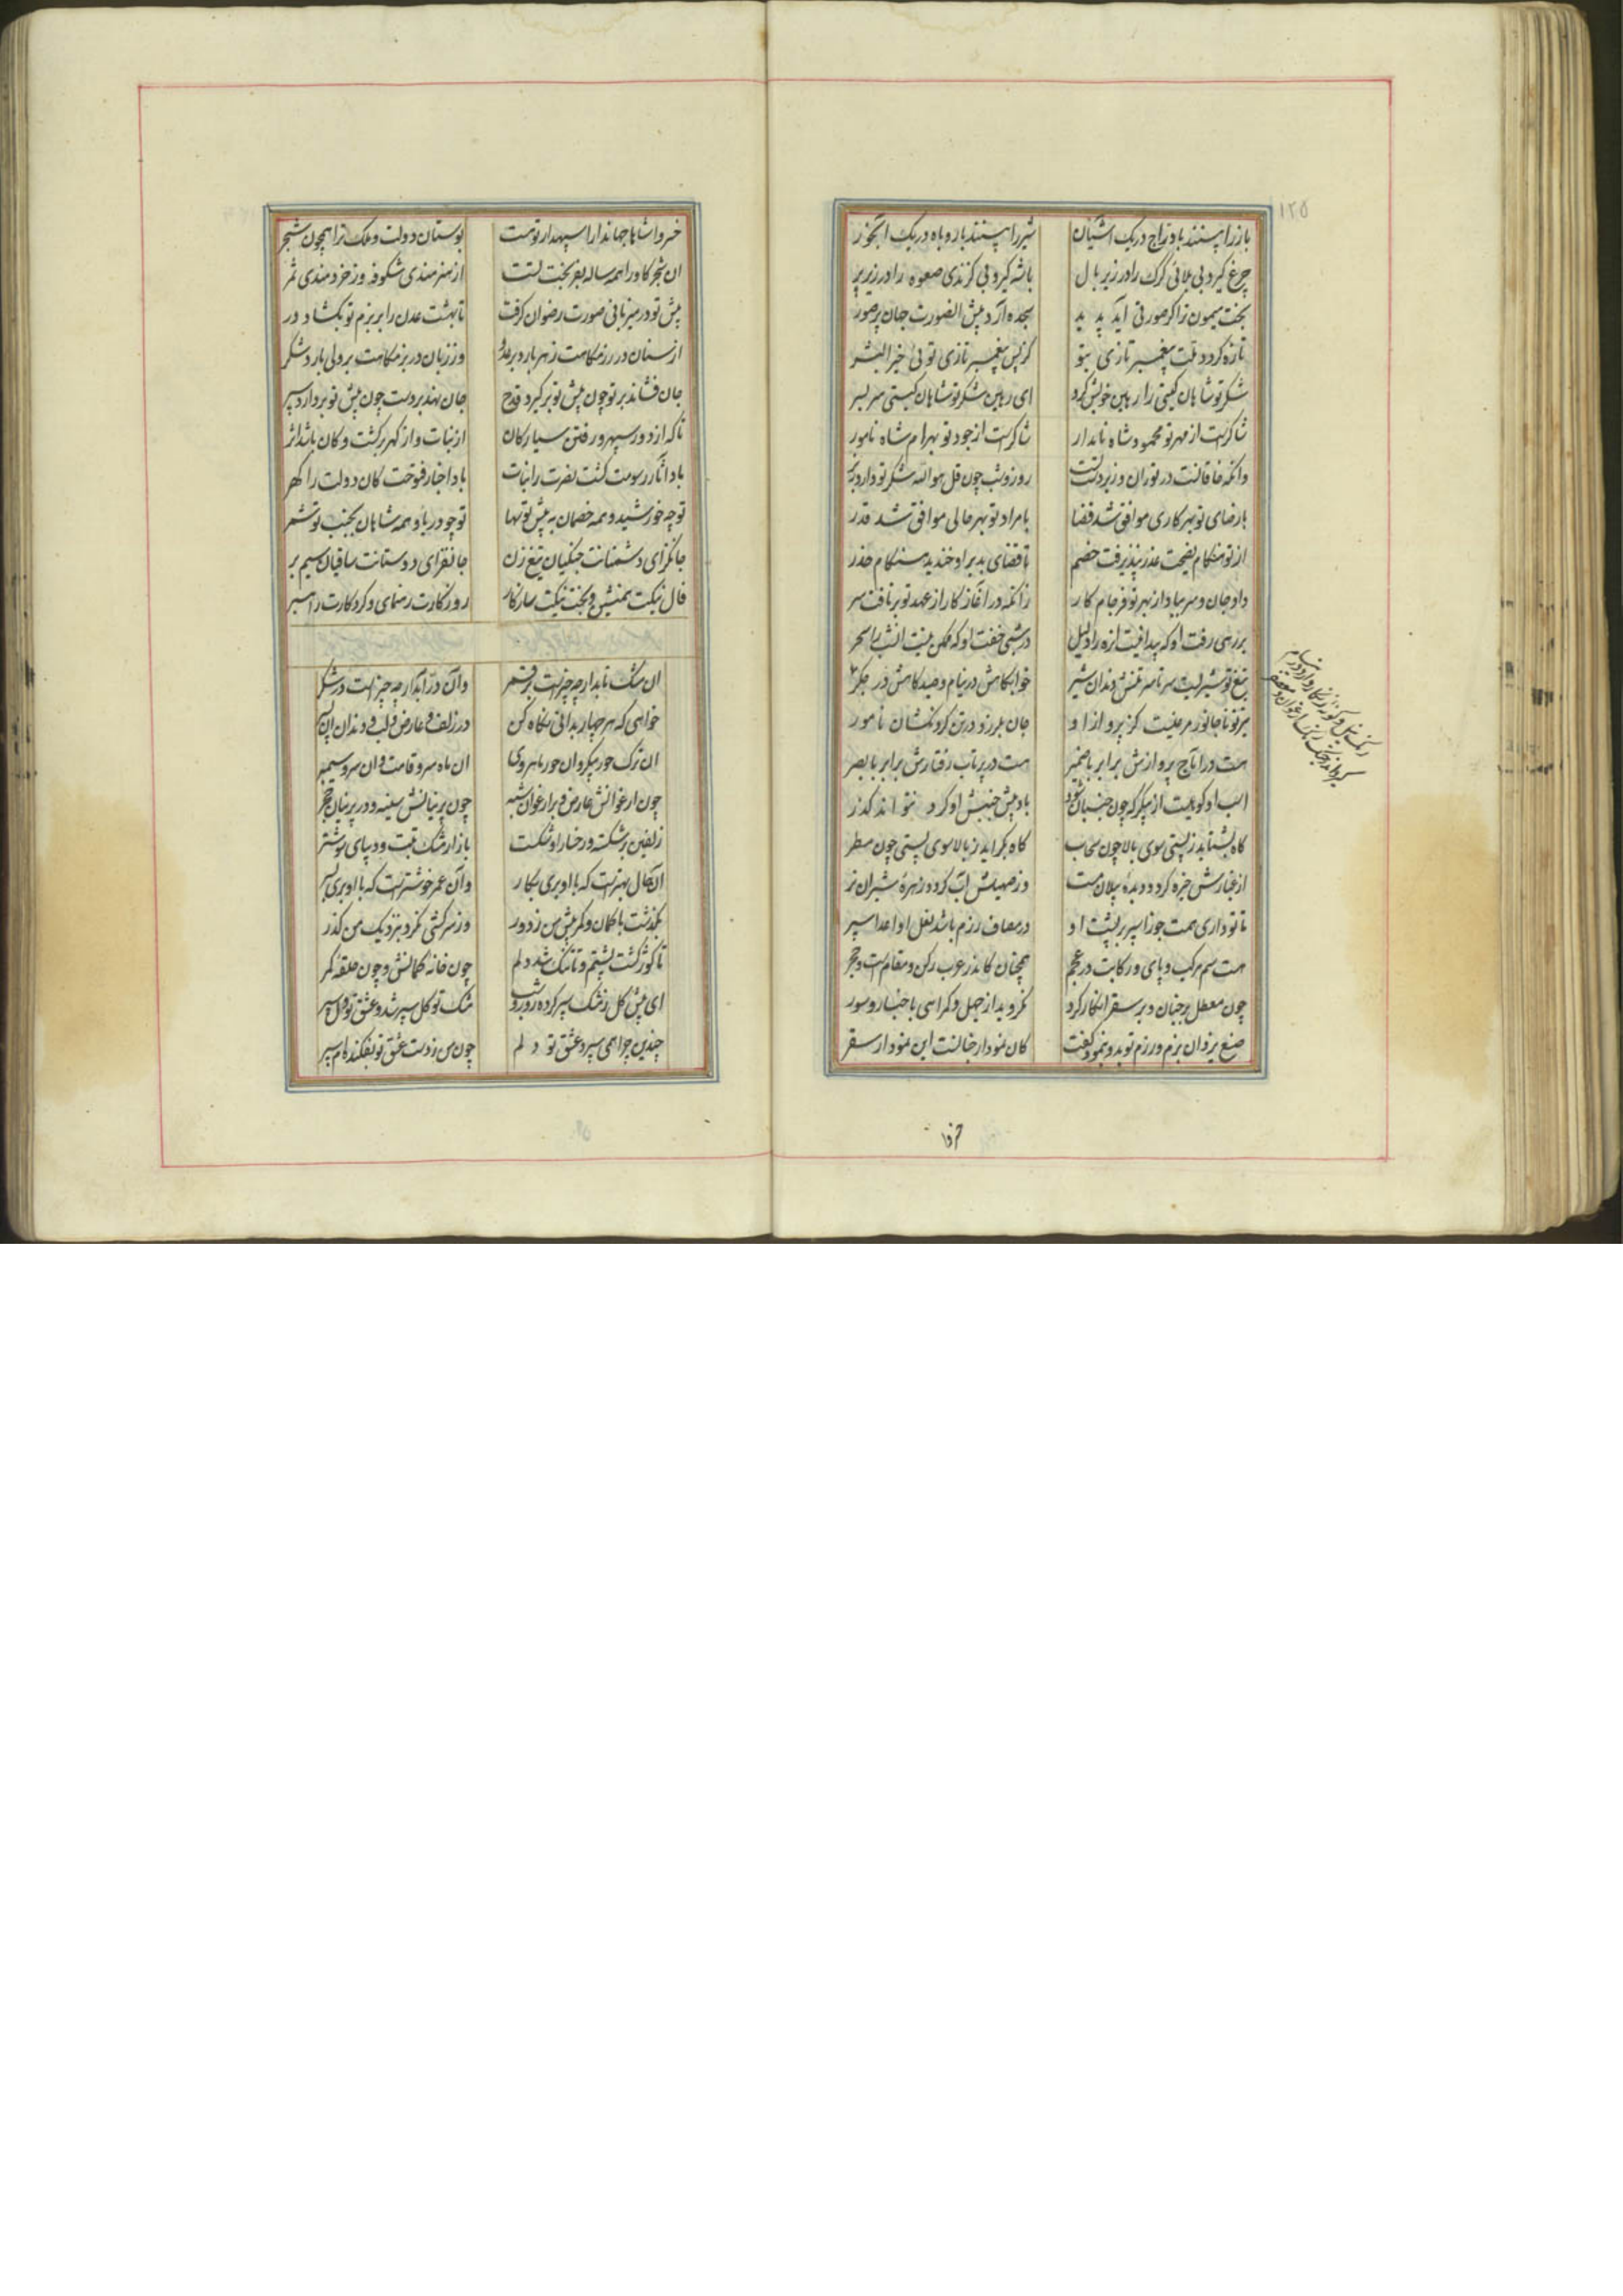 ۱۲۵
باز را بینند با دراج در یک آشیان شیر را بینند با روباه در یک آبخور
چرغ گیرد بی بلائی کرک را در زیر بال باشه گیرد بی گزندی صعوه را در زیر پر
بخت میمون ترا گر صورتی آید پدید سجده آرد پیش آن صورت جهان پر صور
تازه گردد ملت پیغمبر تازی بتو کز پس پیغمبر تازی توئی خیر البشر
شکر تو شاهان گیتی را رهین خویش کرد ای رهین شکر تو شاهان گیتی سر بسر
شاکرست از مهر تو محمود شاه نامدار شاکرست از جود تو بهرام شاه نامور
وانکه خاقانست در توران و زیردست تست روز و شب چون قل هو الله شکر تو دارد ز بر
با رضای تو بهر کاری موافق شد قضا با مراد تو بهر حالی موافق شد قدر
از تو هنگام نصیحت عذر نپذیرفت خصم تا قضای بد بر او خندید هنگام حذر
داد جان و سر بباد از بهر تو فرجام کار زانکه در آغاز کار از عهد تو برتافت سر
بر رهی رفت او که پیدا نیست آن ره را دلیل در شبی خفت او که ممکن نیست آن شب را سحر
تیغ تو شیریست سر تا سر تنش دندان شیر خوابگاهش در نیام و صیدگاهش در جگر
تیر تو ناجانور مرغیست کز پرواز او جان بلرزد در تن گردنکشان نامور
هست در آماج پروازش برابر با ضمیر هست در پرتاب رفتارش برابر با بصر
اسب او کوهیست از پیکر که چون جنبان شود باد پیش جنبش او کرد نتواند گذر
گاه بشتابد ز پستی سوی بالا چون سحاب گاه بگراید ز بالا سوی پستی چون مطر
از غبارش خیره گردد دیدهٔ پیلان مست وز صهیلش آب گردد زهرهٔ شیران نر
تا تو داری همت جوزا سپر بر پشت او در مصاف رزم باشد نعل او اعدا سپر
هست سم مرکب و پای و رکابت در عجم همچنان کاندر عرب رکن و مقام است و حجر
چون معطل بر جنان و بر سقر انکار کرد نگروید از جهل و گمراهی باخبار و سور
صنع یزدان بزم و رزم تو بدو بنمود و گفت کان نمودار جنانست این نمودار سقر
خسروا شاها جهاندارا سپهدار توست بوستان دولت و ملک ترا همچون شجر
آن شجر کاو را همه ساله بفر بخت تست از هنرمندی شکوفه وز خردمندی ثمر
پیش تو در میزبانی صورت رضوان گرفت تا بهشت عدن را بر بزم تو بگشاد در
از سنان در رزمگاهت زهر بارد بر عدو وز زبان در بزمگاهت بر ولی بارد شکر
جان فشاند بر تو چون پیش تو برگیرد قدح جان نهد بر دست چون پیش تو بردارد سپر
تا که از دور سپهر و رفتن سیارگان از نبات و از گهر بر کشت و کان باشد اثر
باد آثار رسومت کشت نصرت را نبات باد اخبار فتوحت کان دولت را گهر
تو چو خورشید و همه خصمان به پیش تو سها تو چو دریا و همه شاهان بجنب تو شمر
جانگزای دشمنانت جنگیان تیغ زن جانفزای دوستانت ساقیان سیم بر
فال نیکت همنشین و بخت نیکت سازگار روزگارت رهنمای و کردگارت راهبر
آن مشک تابدار چه چیز است بر قمر وان در آبدار چه چیز است در شکر
خواهی که هر چهار بدانی نگاه کن در زلف و عارض و لب و دندان آن پسر
آن ترک حور پیکر و آن حور ماهروی آن ماه سرو قامت و آن سرو سیمبر
چون ارغوانش عارض و بر ارغوان شبه چون پرنیانش سینه و در پرنیان حجر
زلفین بر شکسته و رخسار او شکست بازار مشک تبت و دیبای شوشتر
آن حال بهتر است که با او بری بکار وان عمر خوشتر است که با او بری بسر
بگذشت با کمان و کمر پیش من ز دور وز سرکشی نکرد بنزدیک من گذر
تا گوژ گشت پشتم و تا تنگ شد دلم چون خانهٔ کمانش و چون حلقهٔ کمر
ای پیش گل ز مشک سپر کرده روز و شب مشک تو گل سپر شد و عشق تو دل سپر
چندین چرا همی سپرد عشق تو دلم چون من ز دست عشق تو بفکنده‌ام سپر